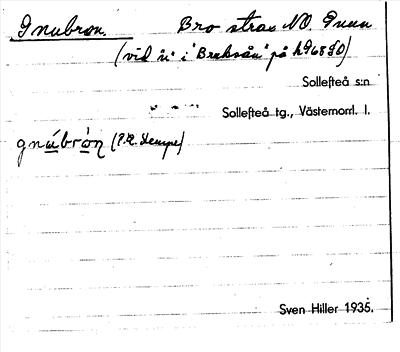 Gnubron. Bro strax NO. Gnun
(vid "å" i "Bruksån" på h968 SO)
Sollefteå s:n
Sollefteå tg., Västernorrl. l.
gnúbròn (P.R. Kempe)
Sven Hiller 1935.